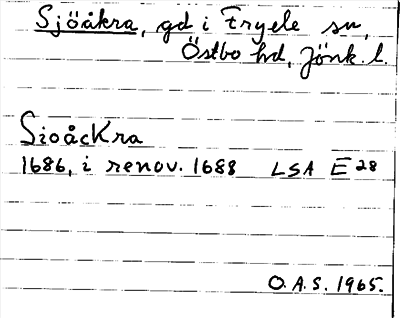 Sjöåkra, gd i Fryele sn,
Östbo hd, Jönk. l.
Sioåckra
1686, i renov. 1688 LSA E 28
O.A.S. 1965.